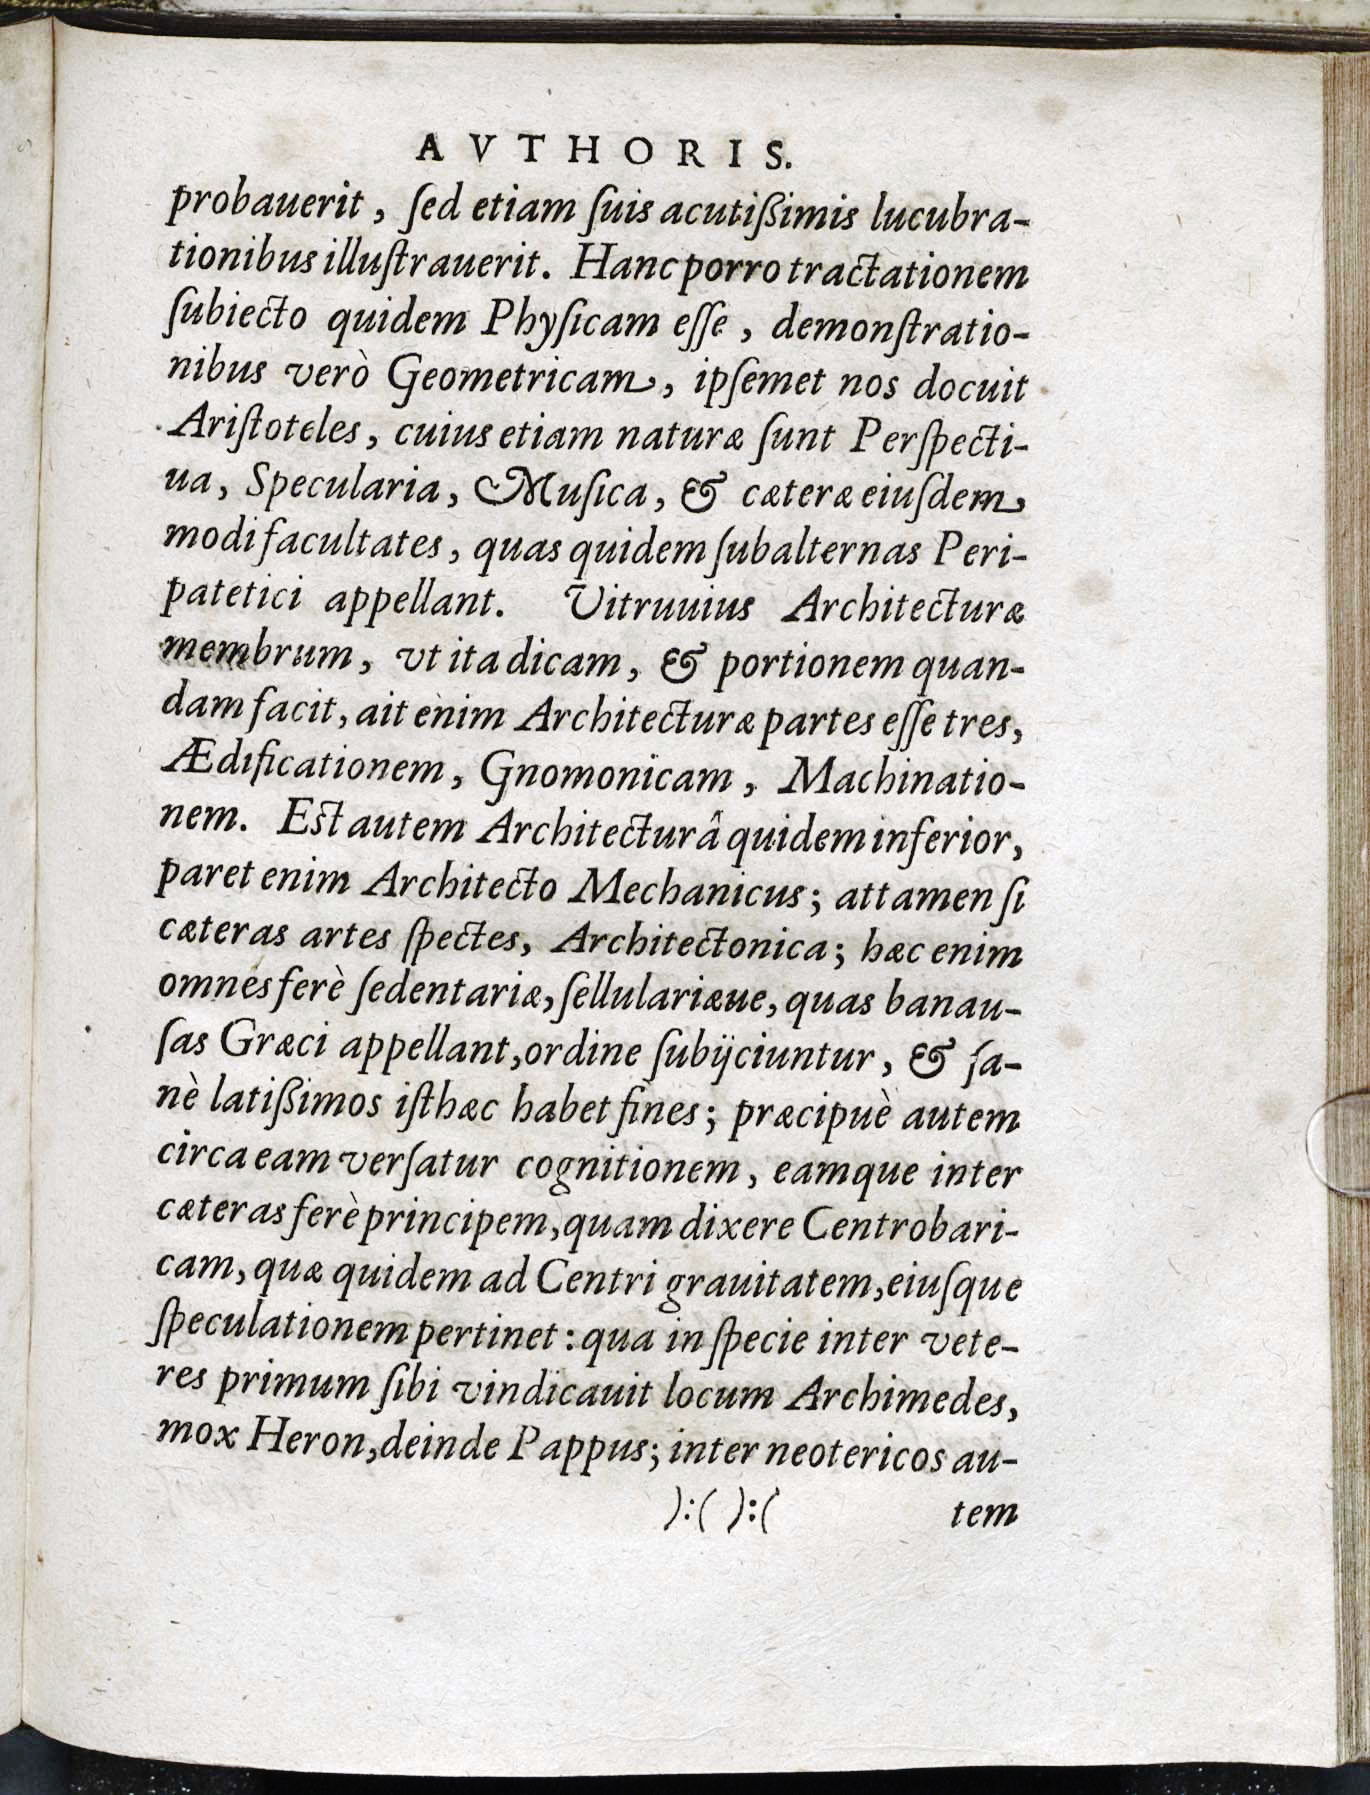 AVTHORIS.
probauerit, ſed etiam ſuis acutißimis lucubra-
tionibus illuſtrauerit. Hanc porro tractationem
ſubiecto quidem Phyſicam eſſe, demonſtratio-
nibus verò Geometricam, ipſemet nos docuit
Ariſtoteles, cuius etiam naturæ ſunt Perſpecti-
ua, Specularia, Muſica, & cæteræ eiuſdem
modi facultates, quas quidem ſubalternas Peri-
patetici appellant. Vitruuius Architecturæ
membrum, vt ita dicam, & portionem quan-
dam facit, ait enim Architecturæ partes eſſe tres,
Ædificationem, Gnomonicam, Machinatio-
nem. Eſt autem Architecturâ quidem inferior,
paret enim Architecto Mechanicus; attamen ſi
cæteras artes ſpectes, Architectonica; hæc enim
omnes ferè ſedentariæ, ſellulariæue, quas banau-
ſas Græci appellant, ordine ſubijciuntur, & ſa-
nè latißimos iſthæc habet fines; præcipuè autem
circa eam verſatur cognitionem, eamque inter
cæteras ferè principem, quam dixere Centrobari-
cam, quæ quidem ad Centri grauitatem, eiuſque
ſpeculationem pertinet: qua in ſpecie inter vete-
res primum ſibi vindicauit locum Archimedes,
mox Heron, deinde Pappus; inter neotericos au-
):( ):( tem